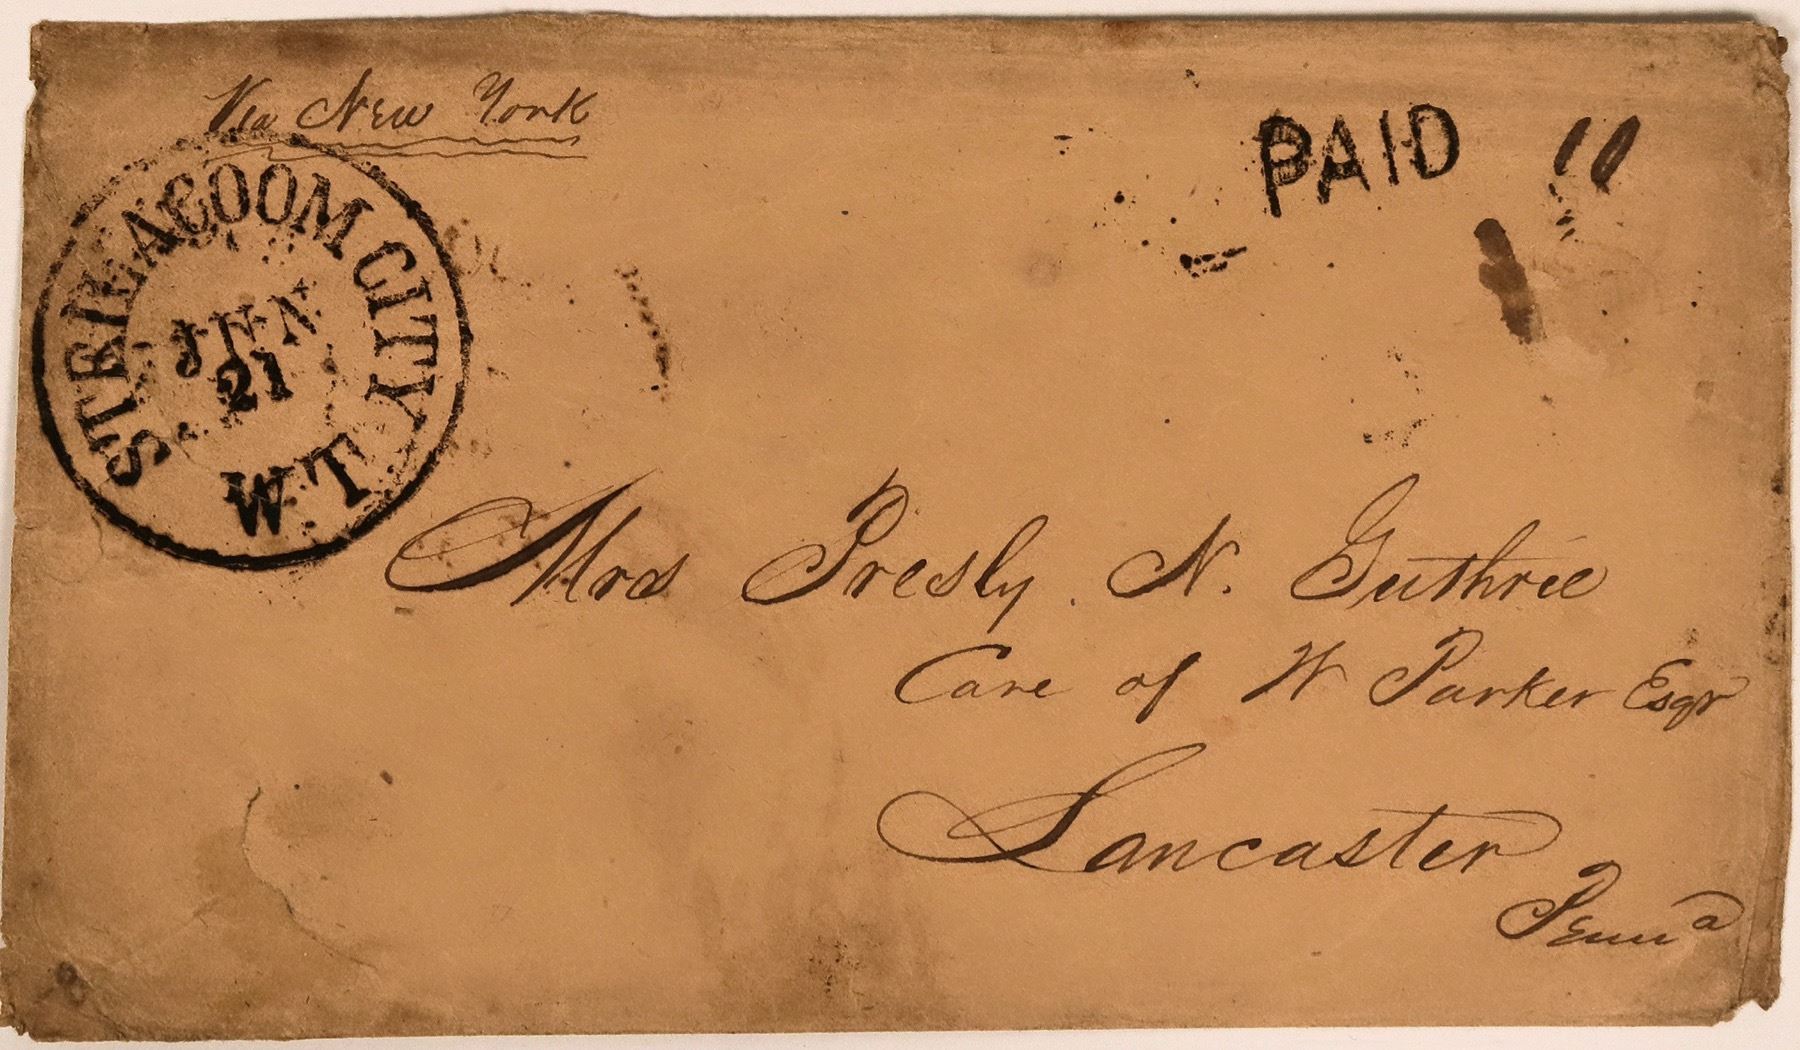 Via New York
STEILACOOM CITY W.T.
JUN
21
PAID
Mrs Presly N. Guthrie
Care of W Parker Esqr
Lancaster
Penna